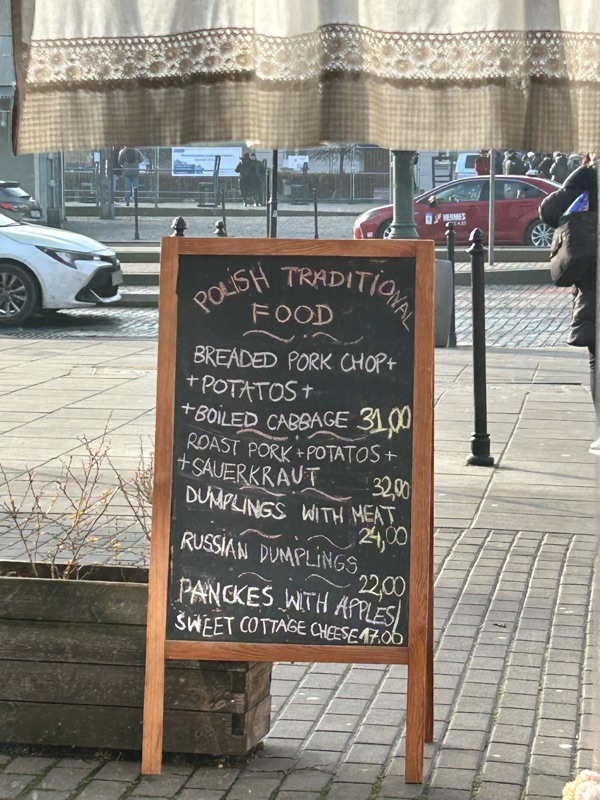 POLISH TRADITIONAL
FOOD
BREADED PORK CHOP+
+POTATOS+
+BOILED CABBAGE 31,00
ROAST PORK+POTATOS+
+SAUERKRAUT
32,00
DUMPLINGS WITH MEAT
24,00
RUSSIAN DUMPLINGS
22,00
PANCKES WITH APPLES/
SWEET COTTAGE CHEESE 17.00
HERMES